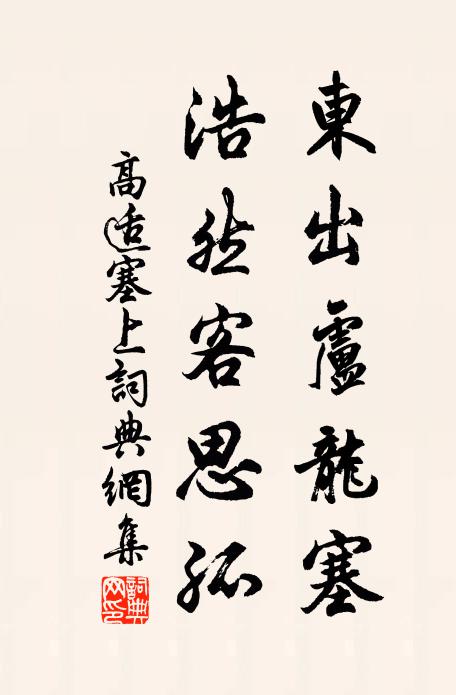 東出盧龍塞
浩然客思孤
高適塞上詞典網集
詞典網印